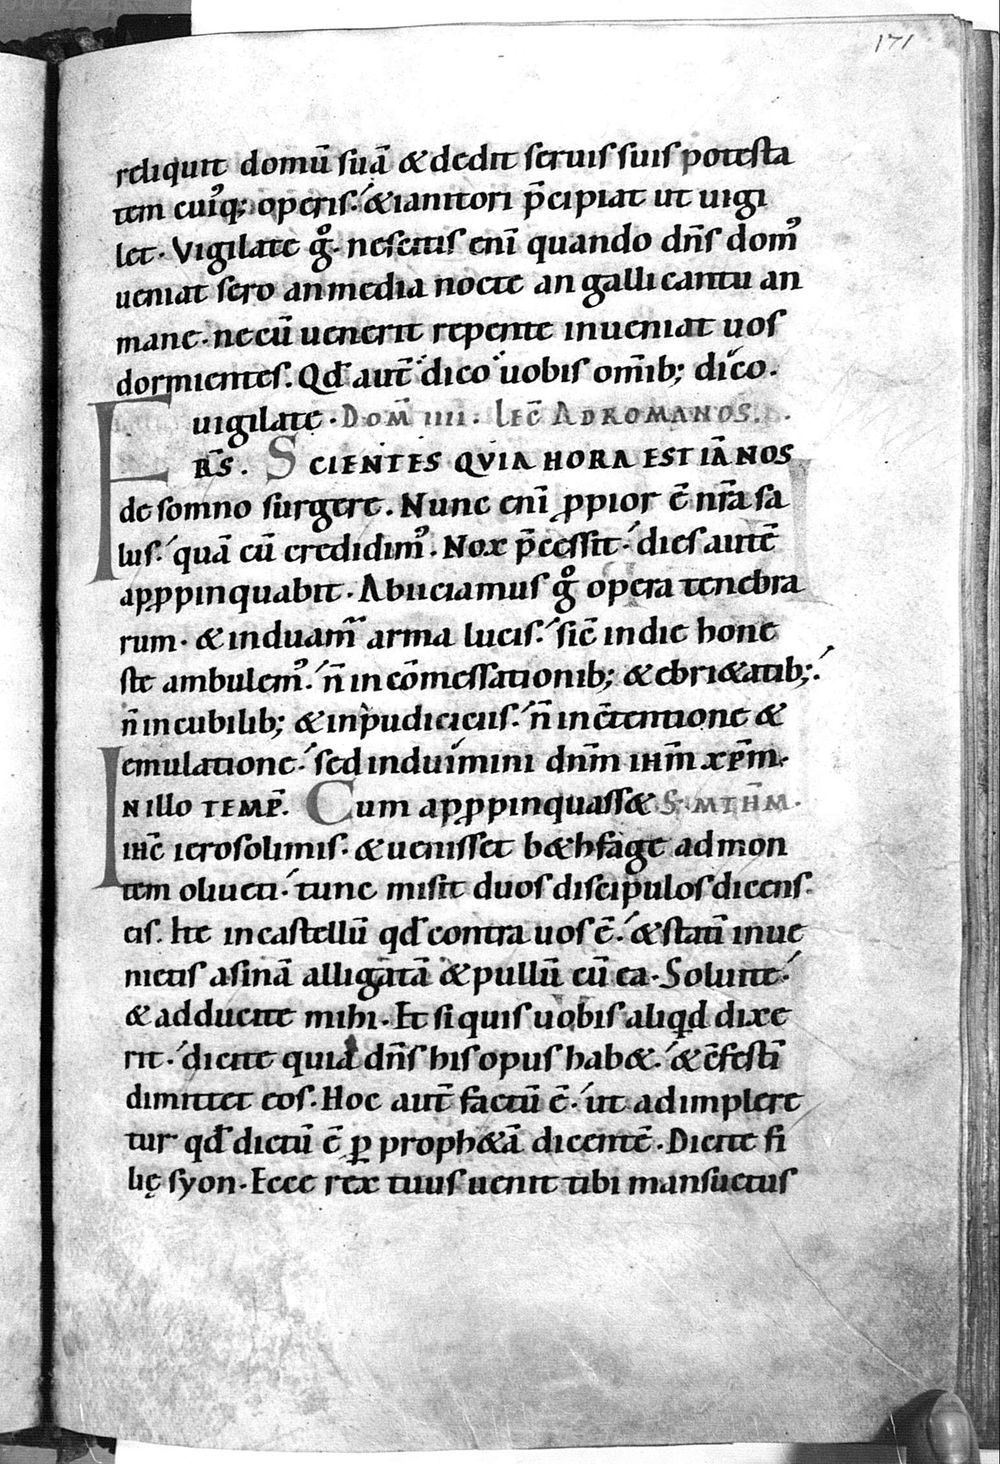 171
reliquit domū suā & dedit seruis suis potesta
tem cuiq; operis. & ianitori p̄cipiat ut uigi
let. Vigilate g̊. nescitis eni̅ quando dn̄s domꝰ
ueniat sero an media nocte an galli cantu an
mane. ne cū uenerit repente inueniat uos
dormientes. Qd̄ aut̄ dico uobis om̄ib; dico.
uigilate. DOM̄ IIII. LEC̄ AD ROMANOS.
FR̄S. SCIENTES QVIA HORA EST IĀ NOS
de somno surgere. Nunc eni̅ ꝓpior ē nr̄a sa
lus. quā cū credidimꝰ. Nox p̄cessit. dies autē
apꝓpinquabit. Abiciamus g̊ opera tenebra
rum. & induam̄ arma lucis. sic̄ in die hone
ste ambulemꝰ. n̄ in cōmessationib; & ebri&atib;.
n̄ in cubilib; & inpudiciciis. n̄ in c̄tentione &
emulatione. sed induimini dn̄m ih̄m xp̄m.
IN ILLO TEMP̄. Cum apꝓpinquass& S. MTH̄M.
ih̄c ierosolimis. & uenisset b&hfage ad mon
tem oliueti. tunc misit duos discipulos dicens.
eis. Ite in castellū qd̄ contra uos ē. & stati̅ inue
nietis asinā alligatā & pullū cū ea. Soluite.
& adducite mihi. Et si quis uobis aliqd dixe
rit. dicite quia dn̄s his opus hab&. & c̄festi̅
dimittet eos. Hoc aut̄ factū ē. ut adimplere
tur qd̄ dictū ē ꝑ proph&ā dicentē. Dicite fi
lię syon. Ecce rex tuus uenit tibi mansuetus